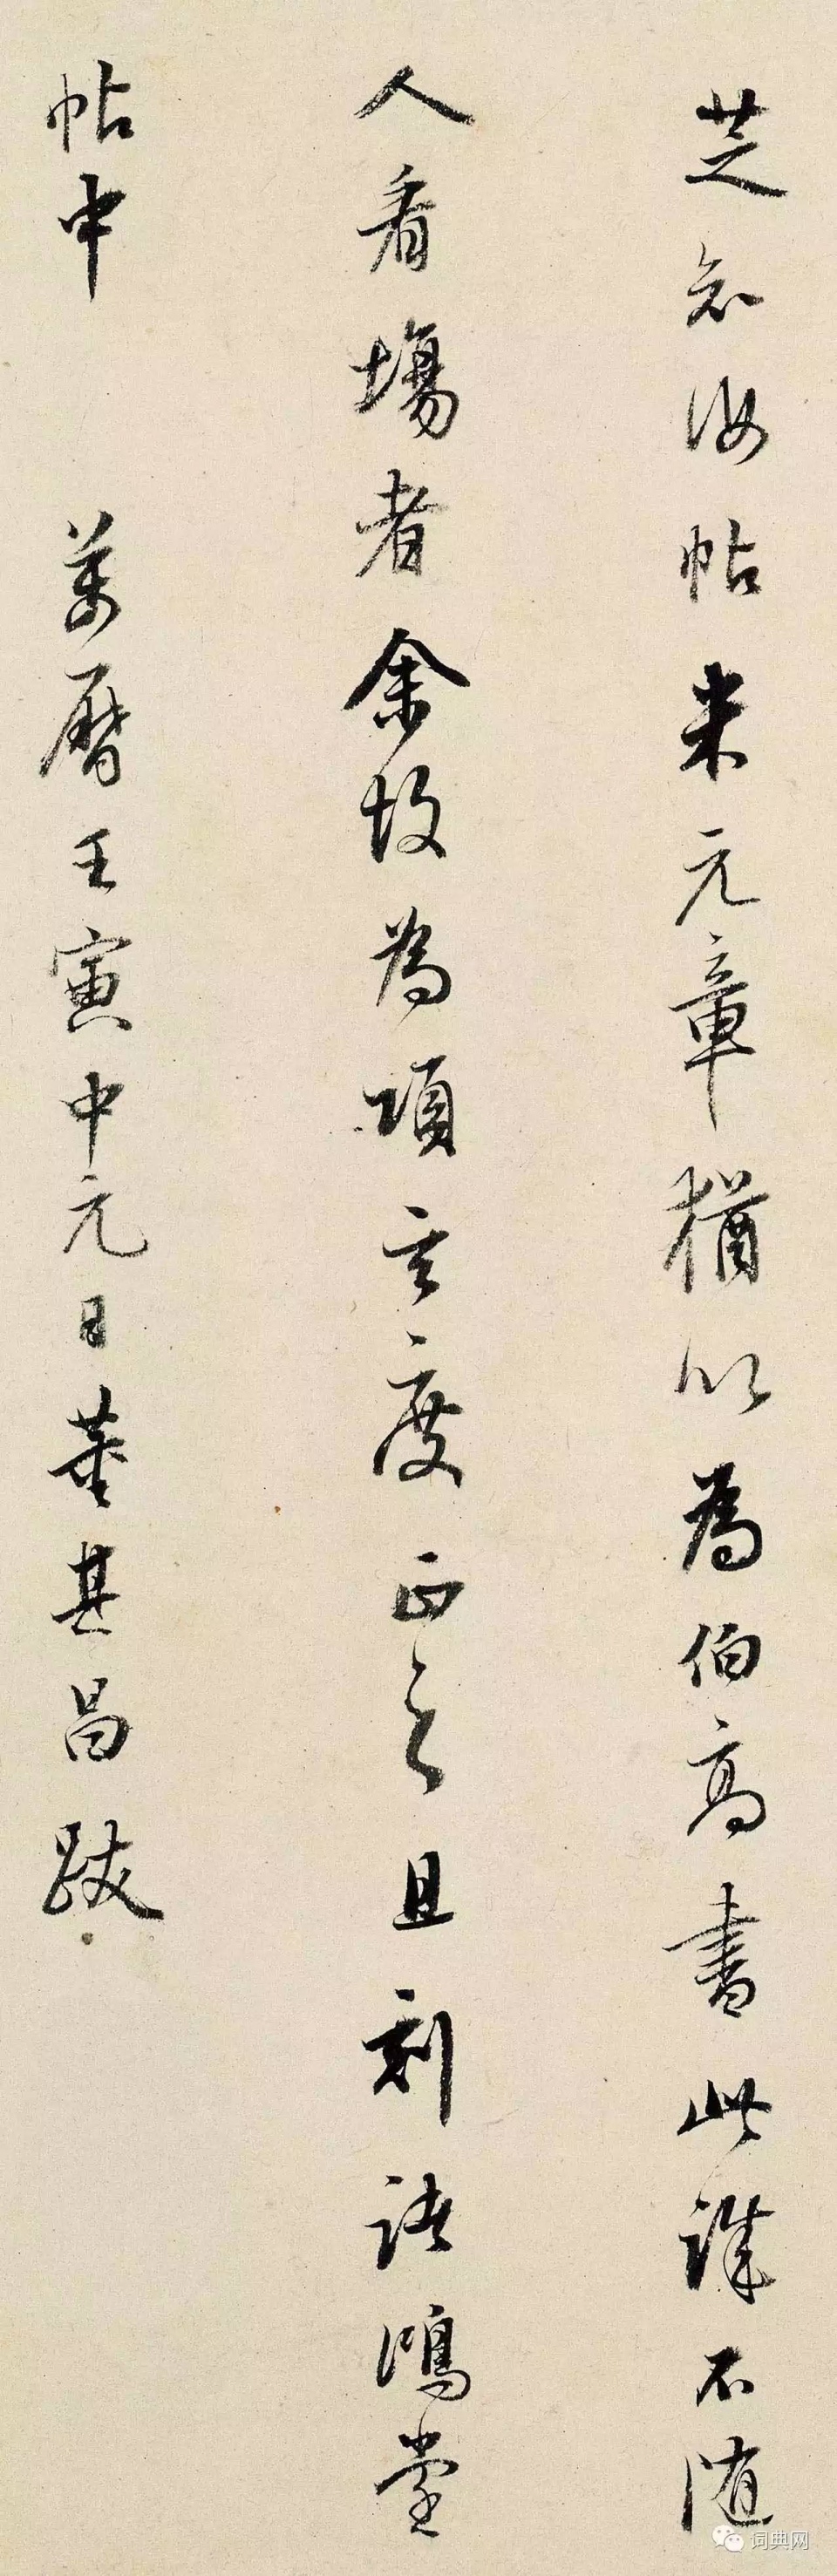 芝知汝帖米元章猶以為伯高書此誠不隨
人看場者余故為項玄度正之且刻諸鴻堂
帖中 萬曆壬寅中元日董其昌跋
词典网